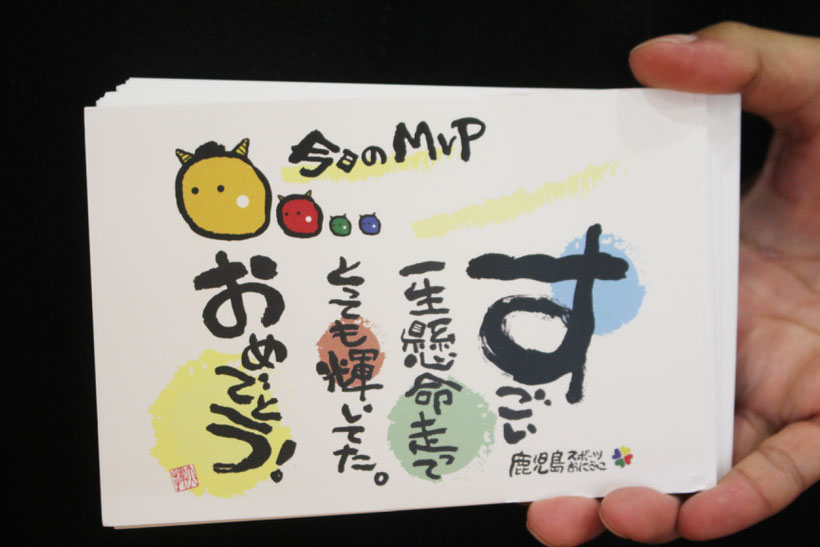 今日のMVP
すごい
一生懸命走って
とっても輝いてた。
おめでとう!
鹿児島スポーツおにごっこ